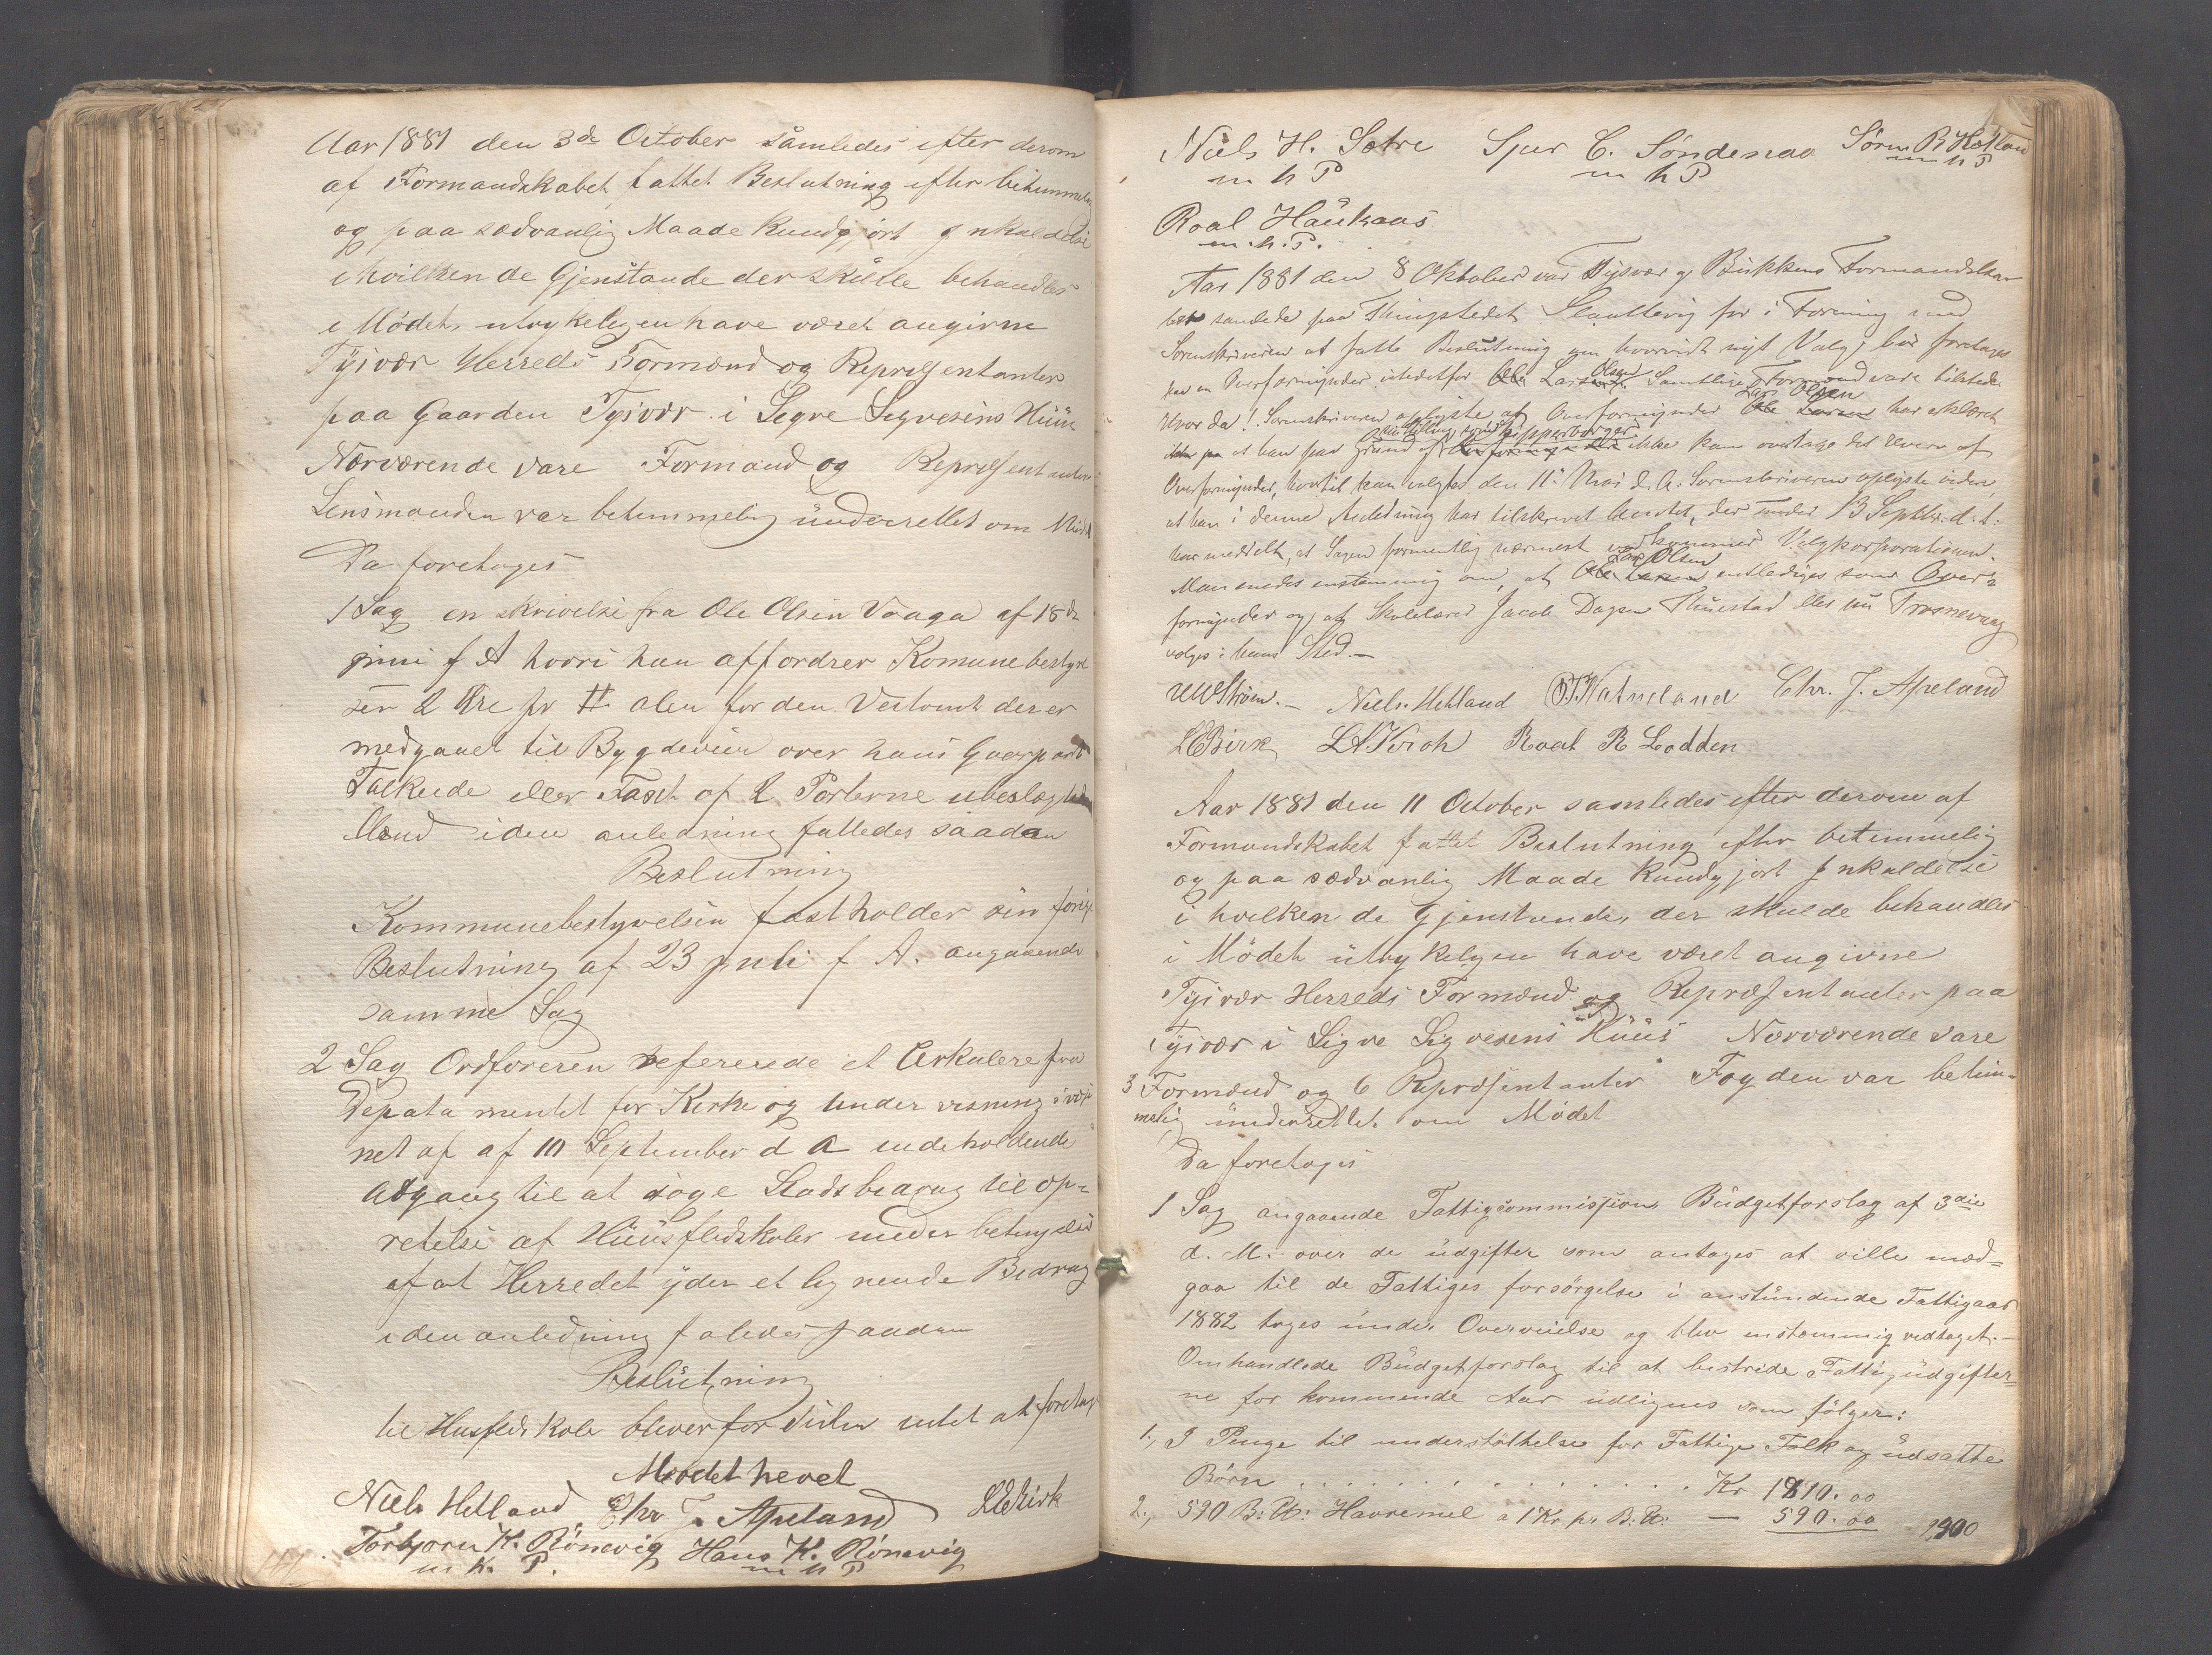 Aar 1881 den 3de October samledes efter derom
af Formandskabet fattet Beslutning efter betimmelig
og paa sædvanlig Maade Kundgjørt Inkaldelse
i hvilken de Gjenstande der skulle behandles
i Mødet, utrykeligen have været angivne
Tysvær Herreds Formænd og Repræsentanter
paa Gaarden Tysvær i Segve Segvesens Huus
Nærværende vare Formænd og Repræsentanter
Lensmanden var betimmelig underrettet om Mødet
Da foretoges
1 Sag en skrivelse fra Ole Olsen Vaaga af 18de
juni f A hvori han affordrer Komunebestyrel
sen 2 Øre pr # alen for den Vestomt der er
medgaaet til Bygdeveien over hans Gaarpart
Falkeide eller Taxt af 2 Parterne ubeslægtede
Mænd i den anledning fattedes saadan
Beslutning
Kommunebestyrelsen fastholder sin forige
Beslutning af 23 Juli f A. angaaende
samme Sag
2 Sag Ordføreren refererede et Cirkulere fra
Depatamentet for Kirke og Undervisning
net af af 10 September d A indeholdende
Adgang til at søge Stadsbedrag til op-
retelse af Huusflidskoler under betingelse
af at Herredet yder et lignende Bedrag
i den anledning fatedes saadan
Beslutning
til Husflidskole bliver for Tiden intet at foretage
Mødet hevet
Niels Hetland Chr J. Apeland LEBirk
Torbjørn K. Rønevig Hans K. Rønevig
m h. P. m h P
Niels H. Sætre Sjur C. Søndenaa Søren B Hetlan
m h P m h P m h P
Roal Haukaas
m. h. P.
Aar 1881 den 8 Oktober var Tysvær og Bukkens Formandska-
ber samlede paa Thingstedet Slaattevig for i Forening med
Sorenskriveren at fatte Beslutning om hvorvidt nyt Valg bør foretages
paa en Overformynder istedetfor Lars Olsen. Samtlige Formænd vare tilstede.
Hvorda! Sorenskriveren oplyste at Overformynder Lars Olsen har erklæret
at han paa Grund af sin Stilling som Skipperborger ikke kan overtage det Hverv af
Overformynder, hvortil han valgtes den 11 Mai d. A. Sorenskriveren oplyste videre,
at han i denne Anledning har tilskrevet Amtet, der under 13 Septbr. d. A.
har meddelt, at Sagen formentlig nærmest vedkommer Valgkorporationen.
Man enedes enstemmig om, at Lars Olsen entlediges som Over-
formynder og at Skolelærer Jacob Dagsen Thuestad eller nu Trosnevaag
vælges i hans Sted.—
UWStrøm.— Niels Hetland O.T.Vatneland Chr. J. Apeland
LEBirk LAKroh Roal R Lodden
Aar 1881 den 11 October samledes efter derom af
Formandskabet fattet Beslutning efter betimmelig
og paa sædvanlig Maade Kundgjørt Inkaldelse
i hvilken de Gjenstande, der skulde behandles
i Mødet utrykeligen have været angivne
Tysvær Herreds Formænd og Repræsentanter paa
Tysvær i Sigve Sigvesens Huus Nærværende vare
3 Formænd og 6 Repræsentanter Fogden var betim-
melig underrettet om Mødet
Da foretoges
1 Sag angaaende Fattigcommissions Budgetforslag af 3die
d. M. over de udgifter som antages at ville med=
gaa til de Fattiges forsørgelse i anstundende Fattigaar
1882 toges under Overveielse og blev enstemmig vedtaget.—
Omhandlede Budgetforslag til at bestride Fattigudgifter=
ne for kommende Aar udlignes som følger:
1., I Penge til understøttelse for Fattige Folk og udsatte
Børn . . . . . . . . . . . . . . . Kr 1810.00
2., 590 B:U: Havremel a 1 Kr pr B:U: — 590.00 2,400